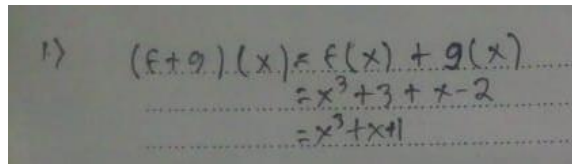 1.) (f+g)(x) = f(x) + g(x)
= x³ + 3 + x - 2
= x³ + x + 1